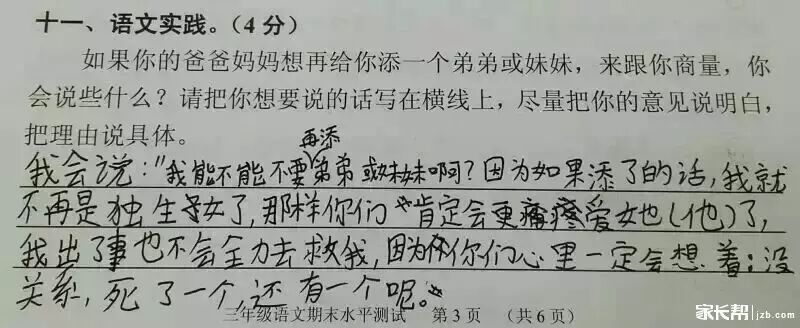 十一、语文实践。(4分)
如果你的爸爸妈妈想再给你添一个弟弟或妹妹，来跟你商量，你
会说些什么？请把你想要说的话写在横线上，尽量把你的意见说明白，
把理由说具体。
再添
我会说："我能不能不要弟弟或妹妹啊？因为如果添了的话，我就
不再是独生子女了，那样你们肯定会更疼爱她(他)了，
我出了事也不会全力去救我，因为你们心里一定会想着：没
关系，死了一个，还有一个呢。"
三年级语文期末水平测试 第3页 (共6页)
家长帮 jzb.com